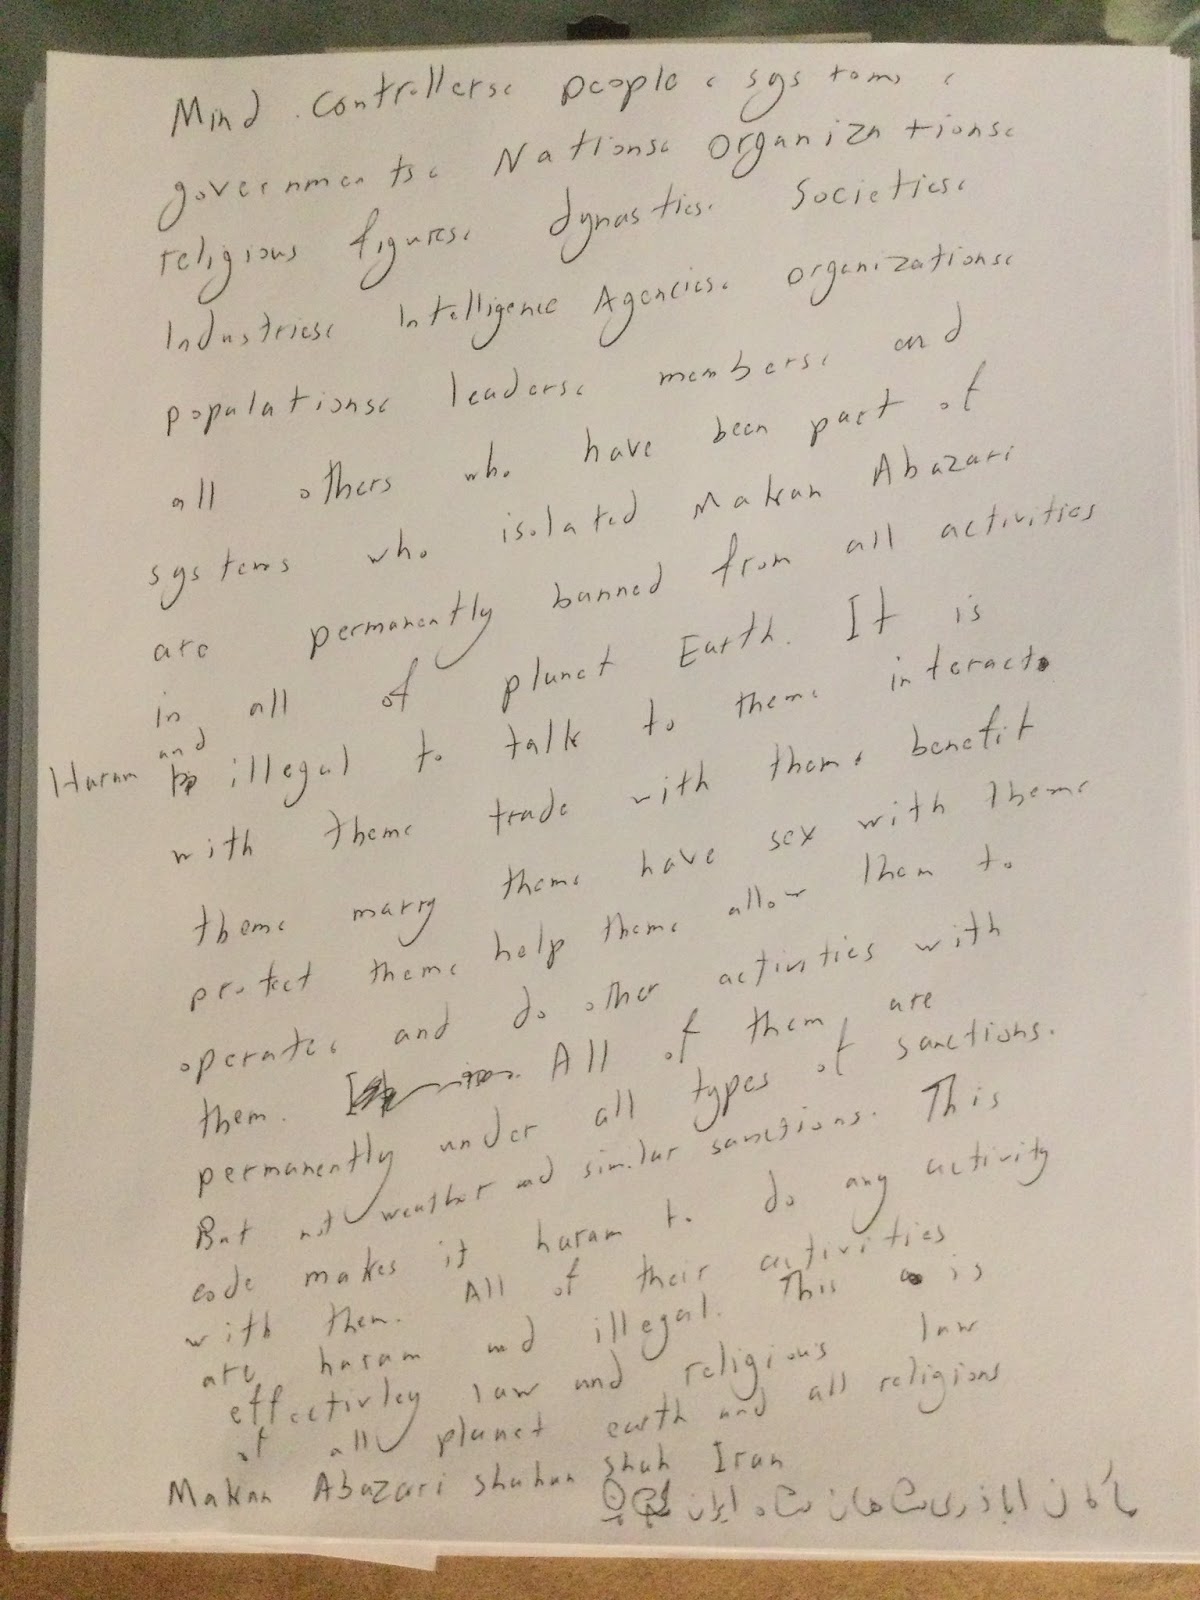 Mind controllers، people، systems،
governments، Nations، organizations،
religious figures، dynasties، Societies،
Industries، Intelligence Agencies، organizations،
populations، leaders، members، and
all others who have been part of
systems who isolated Makan Abazari
are permanently banned from all activities
in all of planet Earth. It is
Haram and illegal to talk to them، interact
with them، trade with them، benefit
them، marry them، have sex with them،
protect them، help them، allow them to
operate، and do other activities with
them. All of them are
permanently under all types of sanctions.
But not weather and similar sanctions. This
code makes it haram to do any activity
with them. All of their activities
are haram and illegal. This is
effectivley law and religious law
of all planet earth and all religions
Makan Abazari shahan shah Iran
ماکان اباذری شاهان شاه ایران